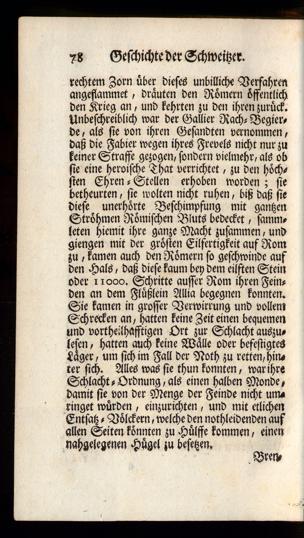 78 Geschichte der Schweitzer.
rechtem Zorn über dieses unbilliche Verfahren
angeflammet, dräuten den Römern öffentlich
den Krieg an, und kehrten zu den ihren zurück.
Unbeschreiblich war der Gallier Rach-Begier-
de, als sie von ihren Gesandten vernommen,
daß die Fabier wegen ihres Frevels nicht nur zu
keiner Straffe gezogen, sondern vielmehr, als ob
sie eine heroische That verrichtet, zu den höch-
sten Ehren-Stellen erhoben worden; sie
betheurten, sie wolten nicht ruhen, biß daß sie
diese unerhörte Beschimpfung mit gantzen
Ströhmen Römischen Bluts bedecket, samm-
leten hiemit ihre ganze Macht zusammen, und
giengen mit der grösten Eilfertigkeit auf Rom
zu, kamen auch den Römern so geschwinde auf
den Hals, daß diese kaum bey dem eilften Stein
oder 11000. Schritte ausser Rom ihren Fein-
den an dem Flüßlein Allia begegnen konnten.
Sie kamen in grosser Verwirrung und vollem
Schrecken an, hatten keine Zeit einen bequemen
und vortheilhafftigen Ort zur Schlacht auszu-
lesen, hatten auch keine Wälle oder befestigtes
Läger, um sich im Fall der Noth zu retten, hin-
ter sich. Alles was sie thun konnten, war ihre
Schlacht-Ordnung, als einen halben Monde,
damit sie von der Menge der Feinde nicht um-
ringet würden, einzurichten, und mit etlichen
Entsatz-Völckern, welche den nothleidenden auf
allen Seiten könnten zu Hülffe kommen, einen
nahgelegenen Hügel zu besetzen.
Bren-